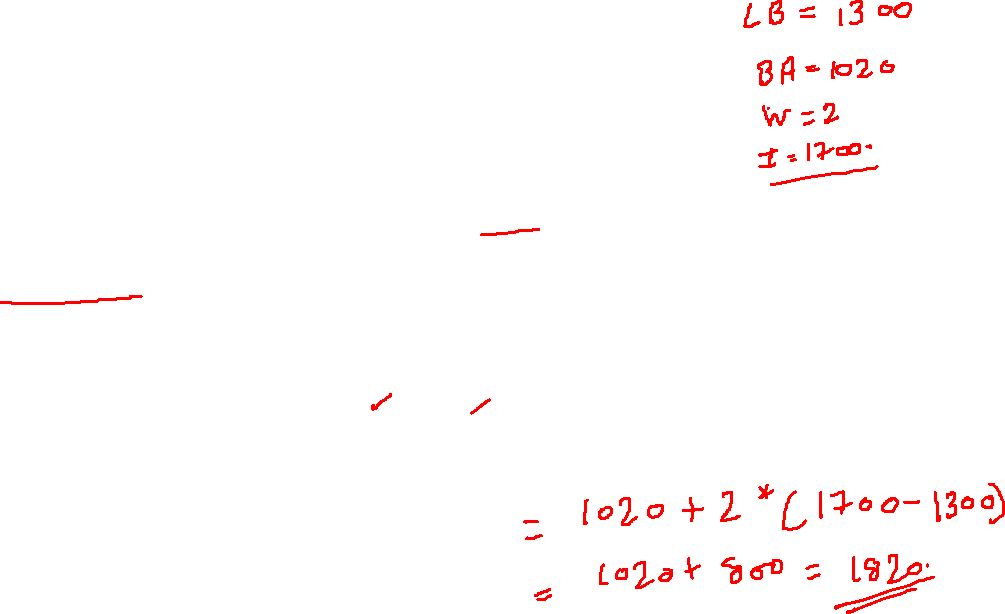 LB = 1300
BA = 1020
W = 2
I = 1700.
= 1020 + 2 * (1700 - 1300)
= 1020 + 800 = 1820.